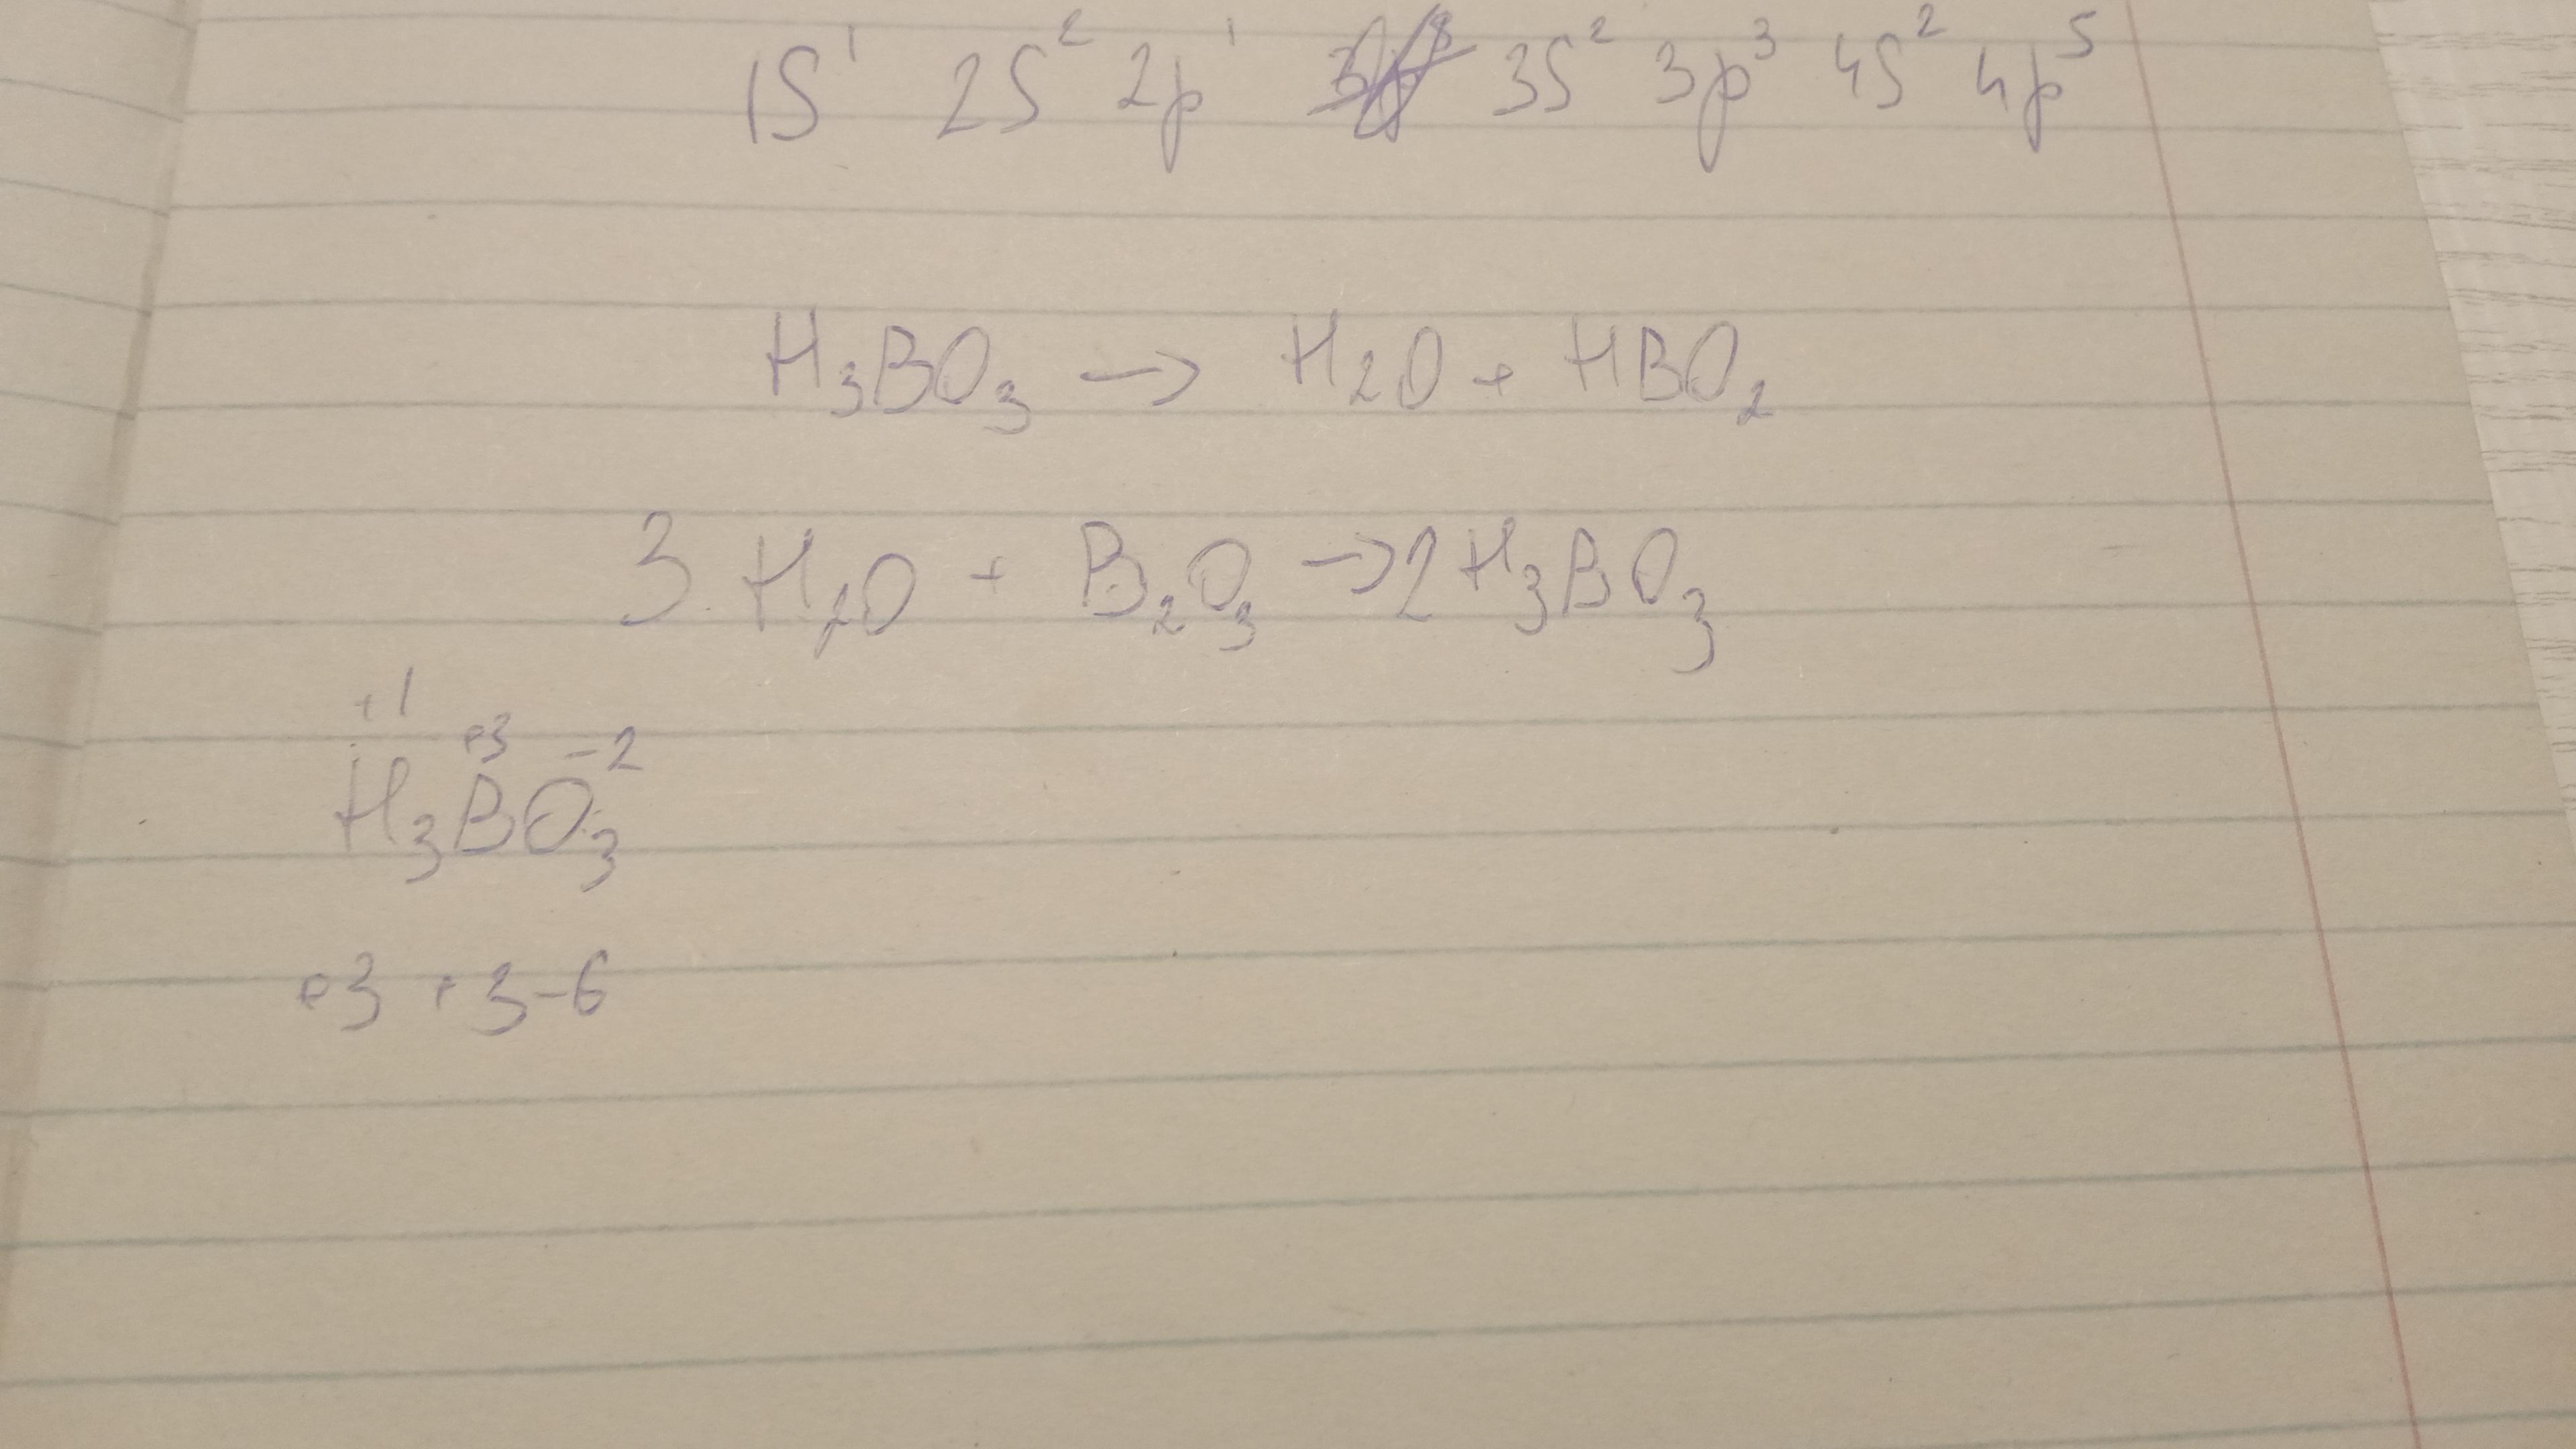 1S¹ 2S² 2p¹ 3S² 3p³ 4S² 4p⁵
H₃BO₃ → H₂O + HBO₂
3 H₂O + B₂O₃ → 2H₃BO₃
+1 +3 -2
H₃BO₃
+3 +3-6